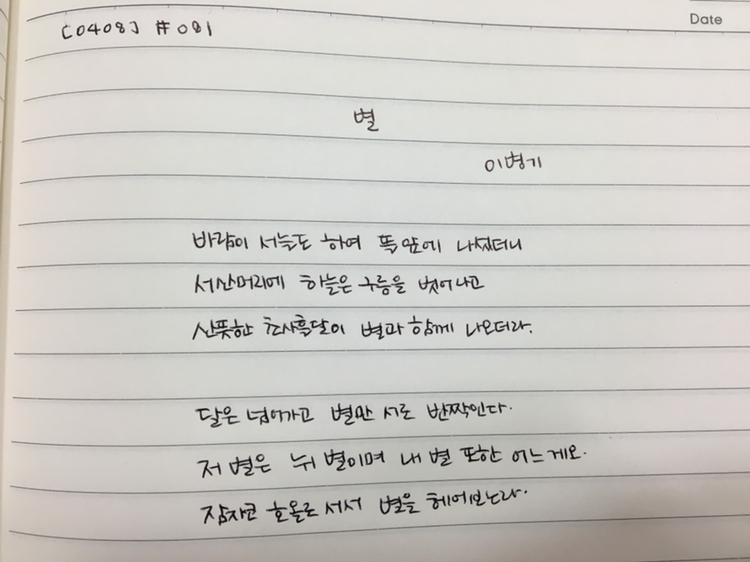 [0408] #081
Date
별
이병기
바람이 서늘도 하여 뜰앞에 나섰더니
서산머리에 하늘은 구름을 벗어나고
산뜻한 초사흘달이 별과 함께 나오더라.
달은 넘어가고 별만 서로 반짝인다.
저 별은 뉘 별이며 내 별 또한 어느게오.
잠자코 호올로 서서 별을 헤어보노라.